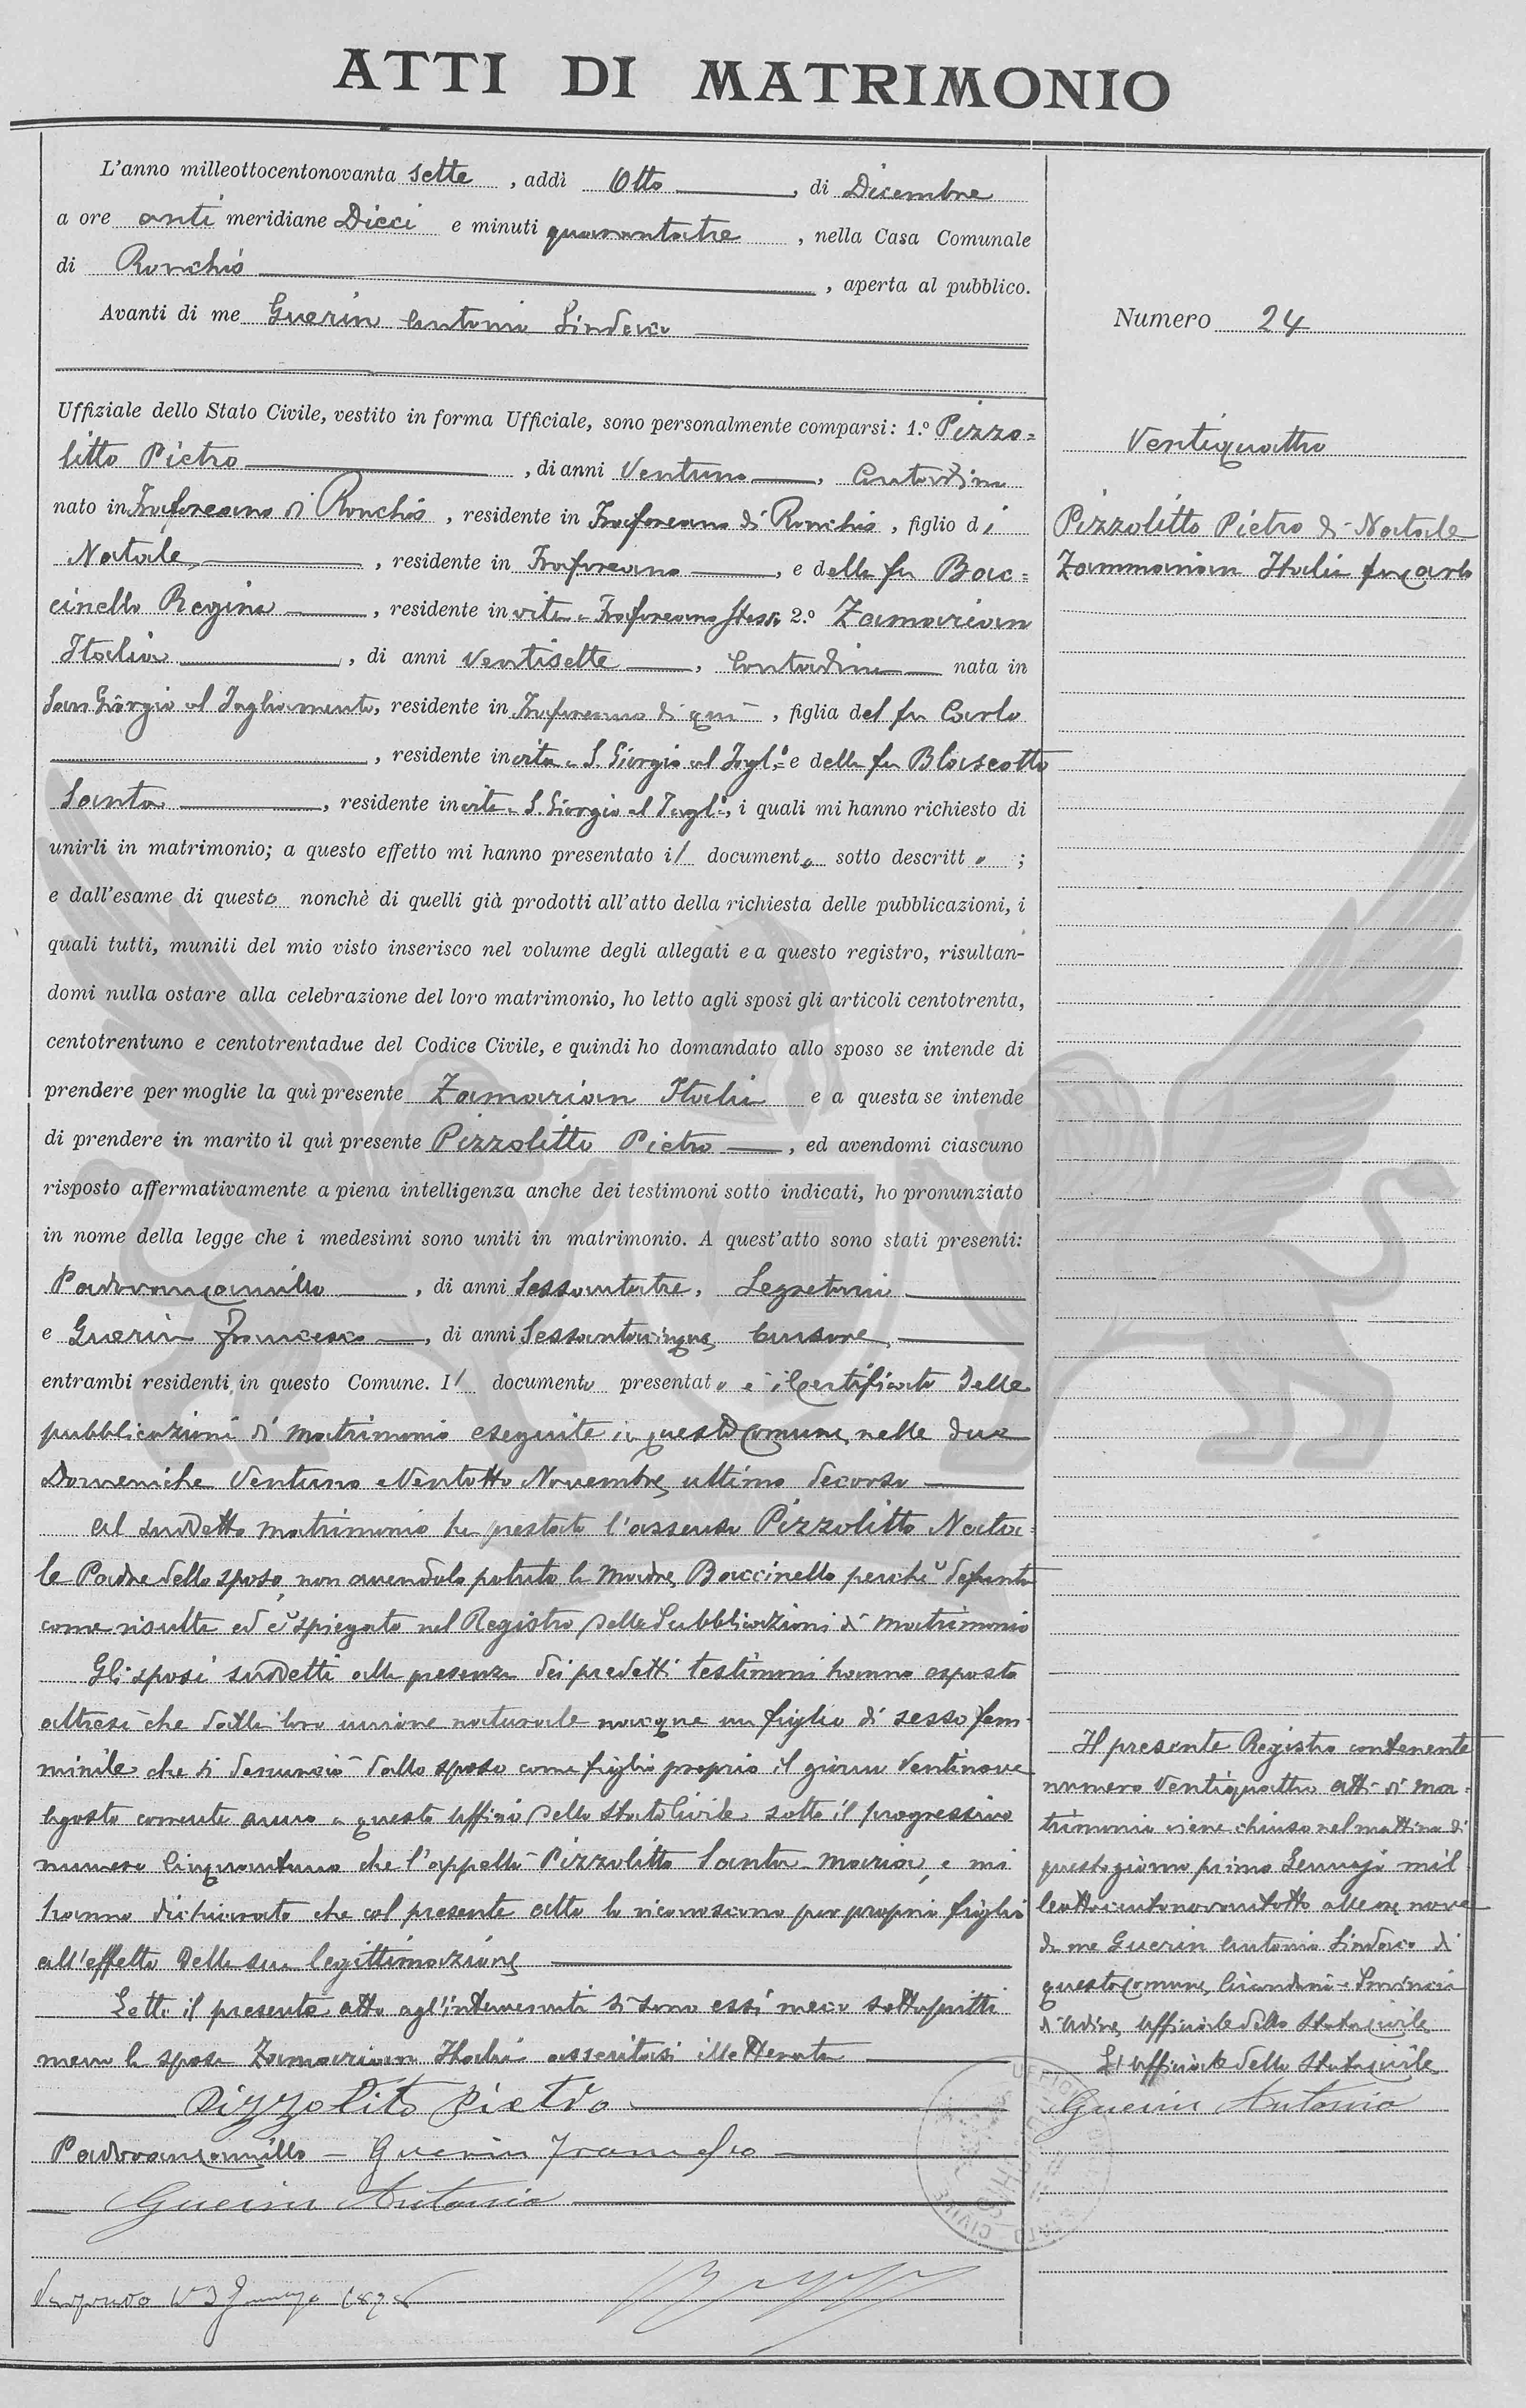 ATTI DI MATRIMONIO
L'anno milleottocentonovanta sette, addì Otto, di Dicembre
a ore anti meridiane Dieci e minuti quarantatre, nella Casa Comunale
di Ronchis, aperta al pubblico.
Avanti di me Guerin Antonio Sindaco
Uffiziale dello Stato Civile, vestito in forma Ufficiale, sono personalmente comparsi: 1.º Pizzo=
litto Pietro, di anni Ventuno, Contadino
nato in Fraforeano di Ronchis, residente in Fraforeano di Ronchis, figlio di
Natale, residente in Fraforeano, e della fu Bac=
cinello Regina, residente in vita a Fraforeano stesso 2.º Zamarian
Italia, di anni Ventisette, Contadina nata in
San Giorgio al Tagliamento, residente in Fraforeano di qui, figlia del fu Carlo
, residente in vita a S. Giorgio al Tagl.º e della fu Blascotto
Santa, residente in vita a S. Giorgio al Tagl.º, i quali mi hanno richiesto di
unirli in matrimonio; a questo effetto mi hanno presentato il documento sotto descritto;
e dall'esame di questo nonchè di quelli già prodotti all'atto della richiesta delle pubblicazioni, i
quali tutti, muniti del mio visto inserisco nel volume degli allegati e a questo registro, risultan-
domi nulla ostare alla celebrazione del loro matrimonio, ho letto agli sposi gli articoli centotrenta,
centotrentuno e centotrentadue del Codice Civile, e quindi ho domandato allo sposo se intende di
prendere per moglie la quì presente Zamarian Italia e a questa se intende
di prendere in marito il quì presente Pizzolitto Pietro, ed avendomi ciascuno
risposto affermativamente a piena intelligenza anche dei testimoni sotto indicati, ho pronunziato
in nome della legge che i medesimi sono uniti in matrimonio. A quest'atto sono stati presenti:
Padovan Camillo, di anni Sessantatre, Segretario
e Guerin Francesco, di anni Sessantacinque, Cursore,
entrambi residenti in questo Comune. Il documento presentato è il Certificato delle
pubblicazioni di matrimonio eseguite in questo Comune, nelle due
Domeniche Ventuno e Ventotto Novembre, ultimo decorso
Al suddetto matrimonio ha prestato l'assenso Pizzolitto Nata=
le Padre dello sposo, non avendolo potuto la Madre, Baccinello perchè defunta
come risulta ed è spiegato nel Registro delle Pubblicazioni di matrimonio
Gli sposi suddetti alla presenza dei predetti testimoni hanno esposto
altresì che dalla loro unione naturale nacque un figlio di sesso fem-
minile che si denunciò dallo sposo come figlia propria il giorno Ventinove
Agosto corrente anno a questo Uffizio dello Stato Civile sotto il progressivo
numero Cinquantuno che l'appellò Pizzolitto Santa-Maria, e mi
hanno dichiarato che col presente atto la riconoscono per propria figlia
all'effetto della sua legittimazione
Letto il presente atto agl'intervenuti si sono essi meco sottoscritti
meno la sposa Zamarian Italia asseritasi illetterata
Pizzolito Pietro
Padovan Camillo - Guerin Francesco
Guerin Antonio
Gennajo 1898
Numero 24
Ventiquattro
Pizzolitto Pietro di Natale
Zammarian Italia fu Carlo
Il presente Registro contenente
numero Ventiquattro atti di ma=
trimonio viene chiuso nel mattino di
questo giorno primo Gennajo mil
leottocentonovantotto alle ore nove
da me Guerin Antonio Sindaco di
questo Comune, Circondario e Provincia
di Udine, Ufficiale dello Stato Civile
L'Ufficiale dello Stato Civile
Guerin Antonio